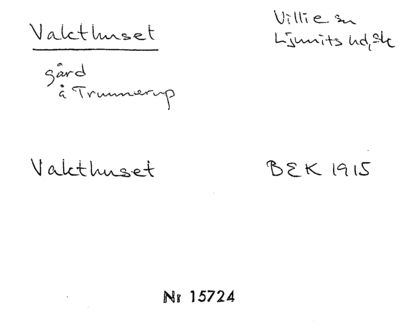 Vakthuset
Villie sn
Ljunits hd, Sk
gård
å Trunnerup
Vakthuset
BEK 1915
Nr 15724